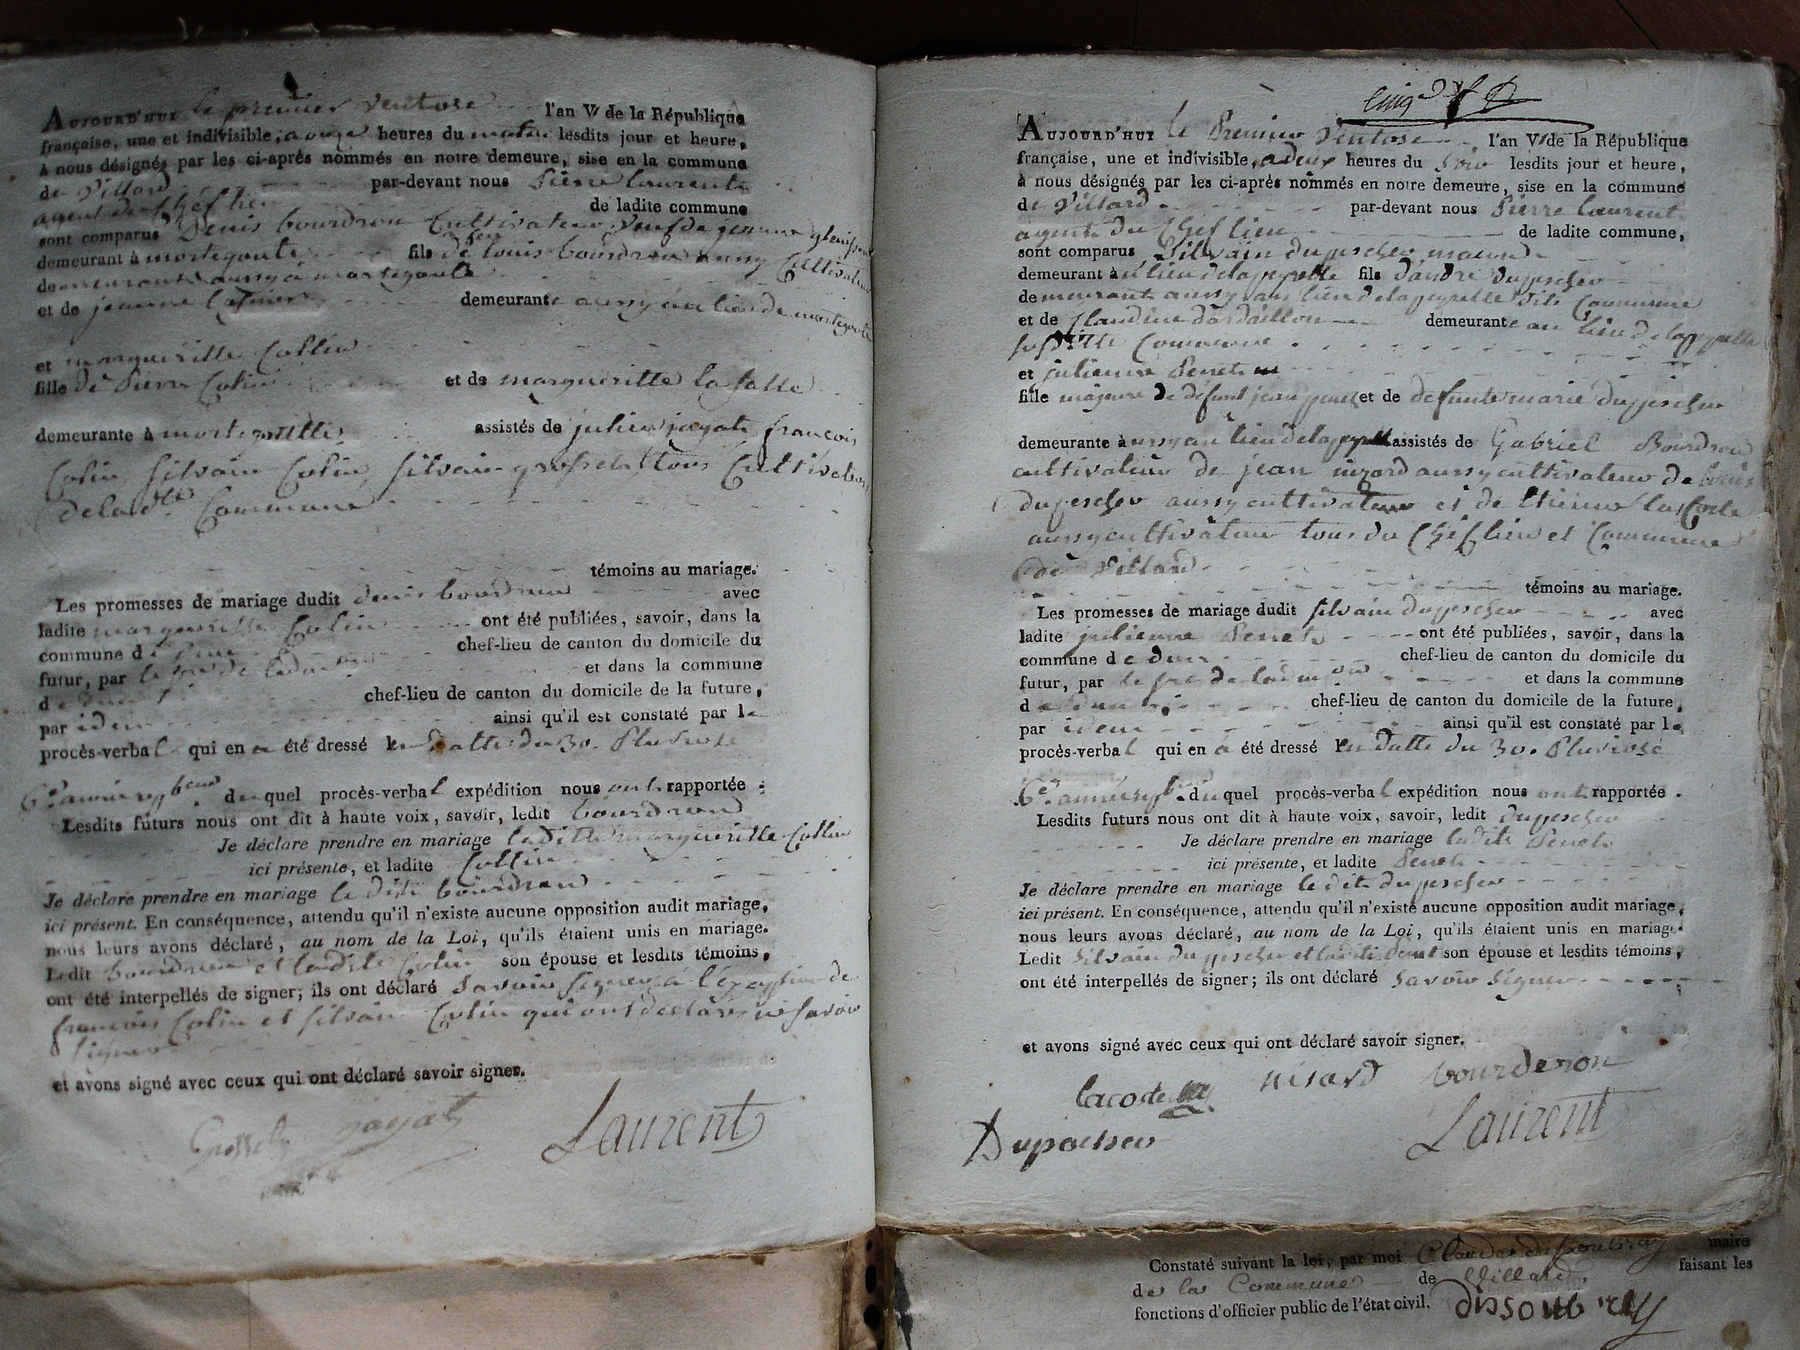 AUJOURD'HUI le premier ventose l'an VI de la République
française, une et indivisible, a onze heures du matin lesdits jour et heure,
à nous désignés par les ci-après nommés en notre demeure, sise en la commune
de Villard par-devant nous Pierre laurent
agent du Chef lieu de ladite commune
sont comparus Denis bourdron Cultivateur veuf de jeanne
demeurant à mortegoute fils de louis bourdron aussy Cultivateur
demeurant aussy à mortegoute
et de jeanne demeurante aussy au lieu de mortegoute
et margueritte Collin
fille de Pierre Colin et de margueritte la salle
demeurante à mortegoutte assistés de julien jayat françois
Colin Silvain Colin, Silvain grosselet tous Cultivateurs
de la dte Commune
témoins au mariage.
Les promesses de mariage dudit denis bourdron avec
ladite margueritte Colin ont été publiées, savoir, dans la
commune de dun chef-lieu de canton du domicile du
futur, par le et dans la commune
de dun chef-lieu de canton du domicile de la future,
par idem ainsi qu'il est constaté par le
procès-verbal qui en a été dressé en datte du 30. Pluviose
6e. année duquel procès-verbal expédition nous ont rapportée :
Lesdits futurs nous ont dit à haute voix, savoir, ledit bourdron
Je déclare prendre en mariage ladite margueritte Collin
ici présente, et ladite Collin
Je déclare prendre en mariage le dit bourdron
ici présent. En conséquence, attendu qu'il n'existe aucune opposition audit mariage,
nous leurs avons déclaré, au nom de la Loi, qu'ils étaient unis en mariage.
Ledit bourdron et ladite Colin son épouse et lesdits témoins,
ont été interpellés de signer; ils ont déclaré savoir signer à l'exception de
françois Colin et silvain Colin qui ont déclaré ne savoir
signer
et avons signé avec ceux qui ont déclaré savoir signer.
Grosselet jayat Laurent
AUJOURD'HUI le Premier Ventose l'an VI de la République
française, une et indivisible, a deux heures du soir lesdits jour et heure,
à nous désignés par les ci-après nommés en notre demeure, sise en la commune
de Villard par-devant nous Pierre laurent
agent du Chef lieu de ladite commune,
sont comparus Silvain dupescher
demeurant à u lieu de lapeyrelle fils d'andré dupescher
demeurant aussy au lieu de lapeyrelle dite Commune
et de Claudine dardaillon demeurante au lieu de lapeyrelle
susditte Commune
et julienne Penet
fille majeure de défunt jean penet et de defunte marie dupescher
demeurante à ussy au lieu de lapeyrelle assistés de Gabriel Bourdron
cultivateur de jean nizard aussy cultivateur de
dupescher aussy cultivateur et de Etienne lacoste
aussy cultivateur tous du Chef lieu et Commune
de Villard
témoins au mariage.
Les promesses de mariage dudit silvain dupescher avec
ladite julienne Penet ont été publiées, savoir, dans la
commune de dun chef-lieu de canton du domicile du
futur, par le et dans la commune
de dun chef-lieu de canton du domicile de la future,
par idem ainsi qu'il est constaté par le
procès-verbal qui en a été dressé en datte du 30. Pluviose
6e. année duquel procès-verbal expédition nous ont rapportée.
Lesdits futurs nous ont dit à haute voix, savoir, ledit dupescher
Je déclare prendre en mariage ladite Penet
ici présente, et ladite Penet
Je déclare prendre en mariage le dit dupescher
ici présent. En conséquence, attendu qu'il n'existe aucune opposition audit mariage,
nous leurs avons déclaré, au nom de la Loi, qu'ils étaient unis en mariage.
Ledit Silvain dupescher et ladite Penet son épouse et lesdits témoins,
ont été interpellés de signer; ils ont déclaré savoir signer
et avons signé avec ceux qui ont déclaré savoir signer.
lacoste nisard bourderon
Dupecher Laurent
Constaté suivant la loi, par moi Claude dissoubray maire
de la Commune de Villard, faisant les
fonctions d'officier public de l'état civil. dissoubray